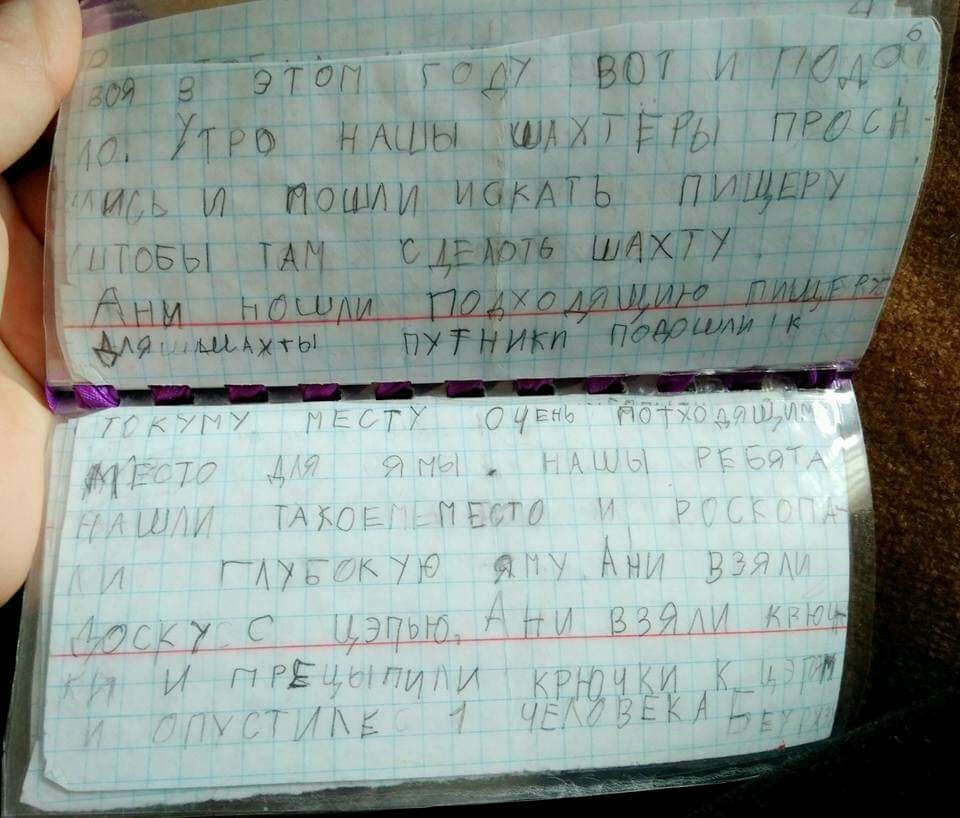 6
ВОЯ В ЭТОМ ГОДУ ВОТ И ПОДО
10. УТРО НАШЫ ШАХТЁРЫ ПРОСН-
ЛИСЬ И ПОШЛИ ИСКАТЬ ПИЩЕРУ
ШТОБЫ ТАМ СДЕЛОТЬ ШАХТУ.
АНИ НОШЛИ ПОДХОДЯЩИЮ ПИЩЕРУ
ДЛЯ ШАХТЫ ПУТНИКИ ПОДОШЛИ К
ТОКУМУ МЕСТУ ОЧЕНЬ ПОТХОДЯЩИМ
МЕСТО ДЛЯ ЯМЫ. НАШЫ РЕБЯТА
НАШЛИ ТАКОЕ МЕСТО И РОСКОПА-
ЛИ ГЛУБОКУЮ ЯМУ. АНИ ВЗЯЛИ
ДОСКУ С ЦЭПЬЮ. АНИ ВЗЯЛИ КРЮЧ-
КИ И ПРЕЦЫПИЛИ КРЮЧКИ К ЦЭПЯМ
И ОПУСТИЛЕ 1 ЧЕЛОВЕКА